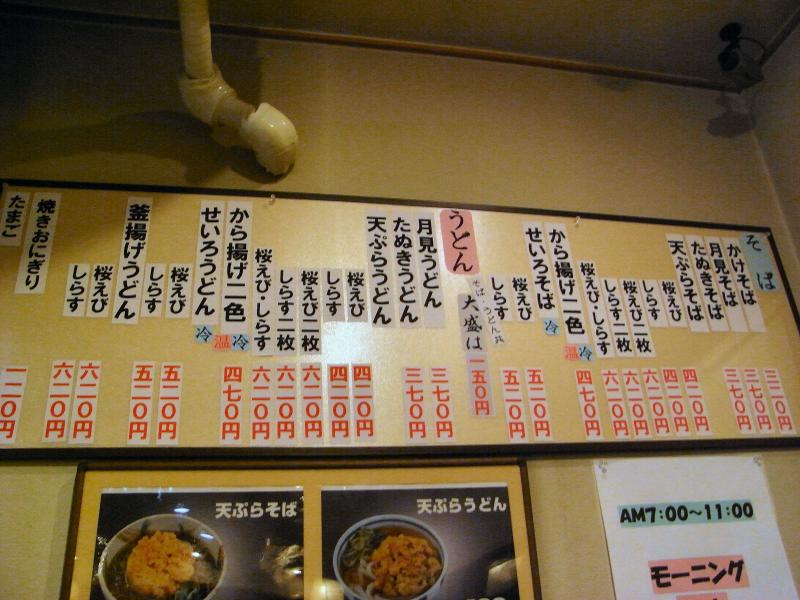 そば
かけそば 三二〇円
月見そば 三七〇円
たぬきそば 三七〇円
天ぷらそば
桜えび 四二〇円
しらす 四二〇円
桜えび二枚 六二〇円
しらす二枚 六二〇円
桜えび・しらす 六二〇円
から揚げ二色 温 冷 四七〇円
せいろそば 冷
桜えび 五二〇円
しらす 五二〇円
そば、うどん共
大盛は 一五〇円
うどん
月見うどん 三七〇円
たぬきうどん 三七〇円
天ぷらうどん
桜えび 四二〇円
しらす 四二〇円
桜えび二枚 六二〇円
しらす二枚 六二〇円
桜えび・しらす 六二〇円
から揚げ二色 温 冷 四七〇円
せいろうどん 冷
桜えび 五二〇円
しらす 五二〇円
釜揚げうどん
桜えび 六二〇円
しらす 六二〇円
焼きおにぎり 一二〇円
たまご
天ぷらそば
天ぷらうどん
AM7:00〜11:00
モーニング